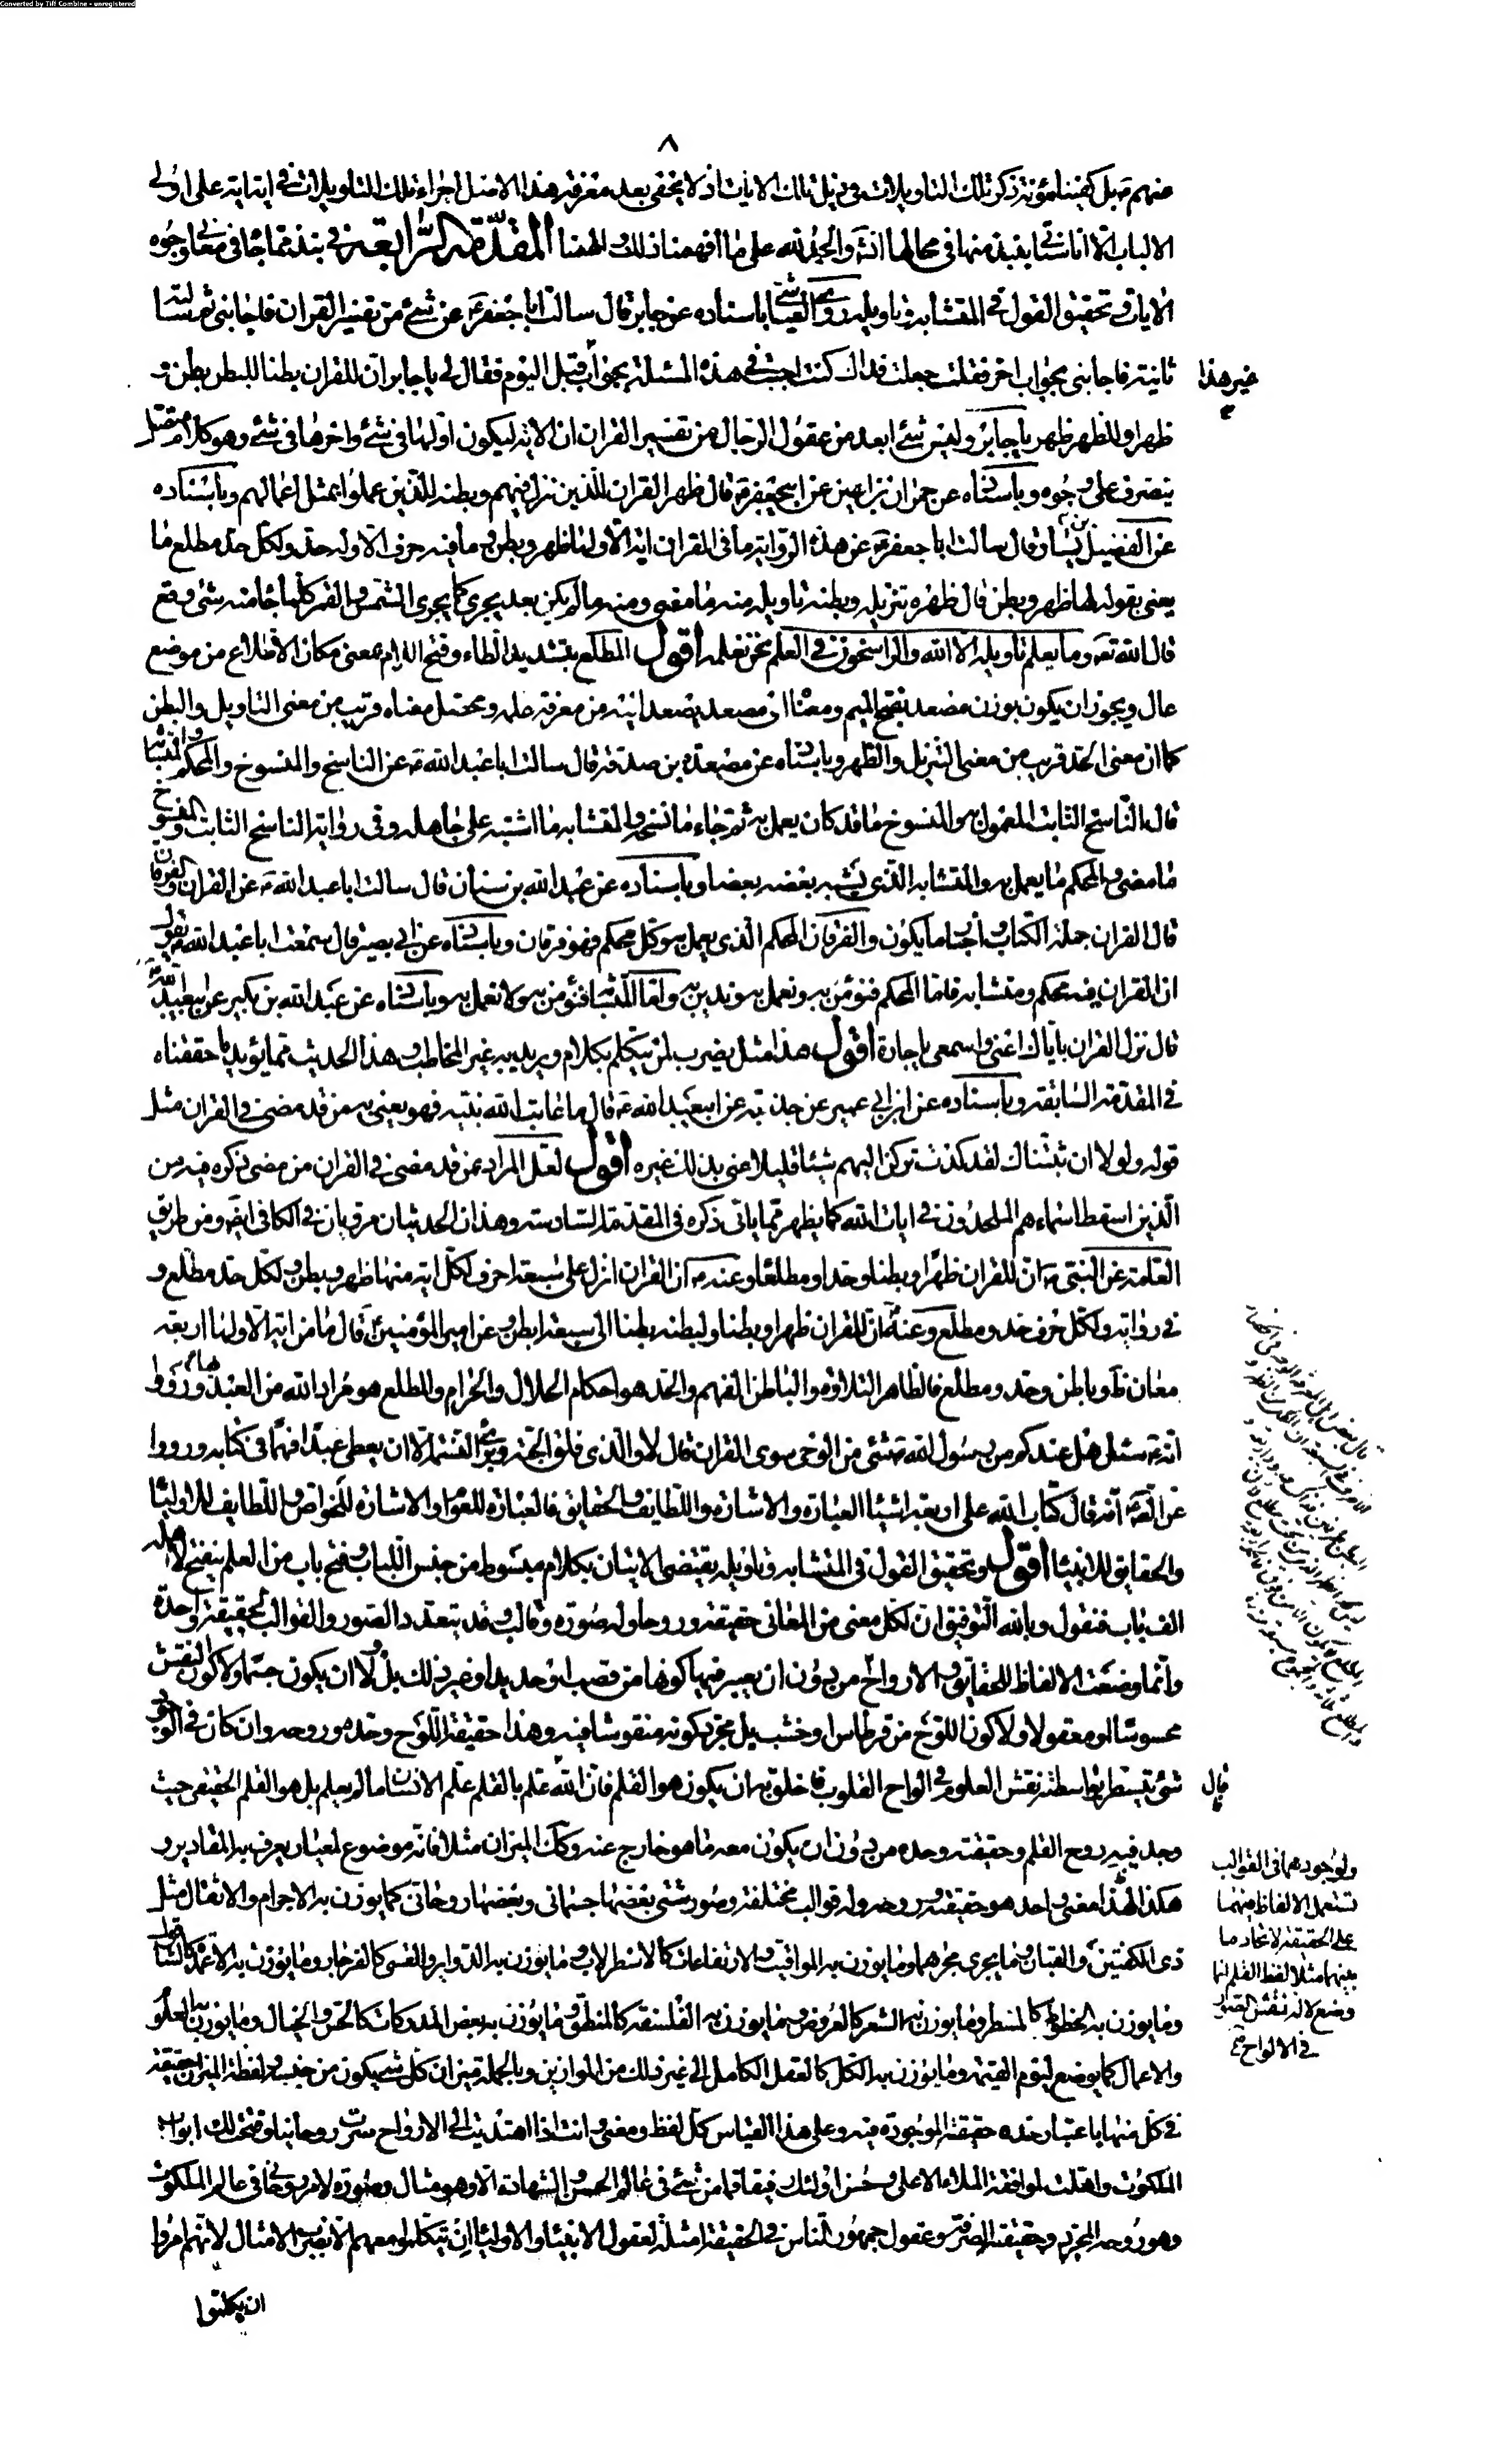 Converted by Tiff Combine - unregistered
٨
منهم بل كفينا مؤنة ذكر تلك التاويلات فى ذيل تلك الايات اذ لا يخفى بعد معرفة هذا الاصل اجراء تلك التاويلات فى اية اية على اولى
الالباب الا انا سناتى بنبذ منها فى محالها انش والحمد لله على ما افهمنا ذلك والهمنا المقدّمة الرّابعة فى نبذ مما جا فى معانى وجوه
الايات و تحقيق القول فى المتشابه و تاويله روى العياشى باسناده عن جابر قال سالت ابا جعفر ع عن شئ من تفسير القران فاجابنى ثم سالته
ثانية فاجابنى بجواب اخر فقلت جعلت فداك كنت اجبت فى هذه المسئلة بجواب قبل اليوم فقال لى يا جابر ان للقران بطنا للبطن بطن و
غير هذا
ظهرا و للظهر ظهر يا جابر و ليس شئ ابعد من عقول الرجال من تفسير القران ان الاية ليكون اولها فى شئ واخرها فى شئ وهو كلام متصل
يتصرف على وجوه و باسناده عن حمران بن اعين عن ابيجعفر ع قال ظهر القران الذين نزل فيهم و بطنه الذين عملوا بمثل اعمالهم و باسناده
عن الفضيل بن يسار قال سالت ابا جعفر ع عن هذه الرواية ما فى القران اية الا و لها ظهر و بطن و ما فيه حرف الا وله حد ولكل حد مطلع ما
يعنى بقوله لها ظهر و بطن قال ظهره تنزيله و بطنه تاويله منه ما مضى و منه ما لم يكن بعد يجرى كما يجرى الشمس والقمر كلما جا منه شئ وقع
قال الله تع وما يعلم تاويله الا الله والراسخون فى العلم نحن نعلمه اقول المطلع بتشديد الطاء و فتح اللام بمعنى مكان الاطلاع من موضع
عال و يجوز ان يكون بوزن مصعد بفتح الميم و معناه اى مصعد يصعد اليه من معرفة علمه و محصل معناه قريب من معنى التاويل والبطن
كما ان معنى الحد قريب من معنى التنزيل والظهر و باسناده عن مسعدة بن صدقة قال سالت ابا عبد الله ع عن الناسخ والمنسوخ والمحكم والمتشابه
قال الناسخ الثابت المعمول به والمنسوخ ما قد كان يعمل به ثم جاء ما نسخه والمتشابه ما اشتبه على جاهله و فى رواية الناسخ الثابت والمنسوخ
ما مضى والمحكم ما يعمل به والمتشابه الذى يشبه بعضه بعضا و باسناده عن عبد الله بن سنان قال سالت ابا عبد الله ع عن القران والفرقان
قال القران جملة الكتاب و اخبار ما يكون والفرقان المحكم الذى يعمل به وكل محكم فهو فرقان و باسناده عن ابى بصير قال سمعت ابا عبد الله ع يقول
ان القران فيه محكم و متشابه فاما المحكم فنؤمن به و نعمل به و ندين به و اما المتشابه فنؤمن به و لا نعمل به و باسناده عن عبد الله بن بكير عن ابيعبد الله ع
قال نزل القران باياك اعنى واسمعى يا جارة اقول هذا مثل يضرب لمن يتكلم بكلام و يريد به غير المخاطب و هذا الحديث مما يؤيد ما حققناه
فى المقدمة السابقة و باسناده عن ابن ابى عمير عن حدثه عن ابيعبد الله ع قال ما عاتب الله نبيه فهو يعنى به من قد مضى فى القران مثل
قوله و لولا ان ثبتناك لقد كدت تركن اليهم شيئا قليلا عنى بذلك غيره اقول لعل المراد بمن قد مضى فى القران من مضى ذكره فيه من
الذين اسقط اسماءهم الملحدون فى ايات الله كما يظهر مما ياتى ذكره فى المقدمة السادسة و هذان الحديثان مرويان فى الكافى ايض و من طريق
العامة عن النبى ص ان للقران ظهرا و بطنا و حدا و مطلعا و عنه ص ان القران انزل على سبعة احرف لكل اية منها ظهر و بطن و لكل حد مطلع و
فى رواية و لكل حرف حد و مطلع و عنه ص ان للقران ظهرا و بطنا و لبطنه بطنا الى سبعة ابطن و عن امير المؤمنين ع قال ما من اية الا و لها اربعة
معان ظاهر و باطن و حد و مطلع فالظاهر التلاوة والباطن الفهم والحد هو احكام الحلال والحرام والمطلع هو مراد الله من العبد بها و رووا
انه ع سئل هل عندكم من رسول الله ص شئ من الوحى سوى القران قال لا والذى فلق الحبة و برئ النسمة الا ان يعطى عبدا فهما فى كتابه و رووا
عن الص ع انه قال كتاب الله على اربعة اشياء العبارة والاشارة واللطايف والحقايق فالعبارة للعوام والاشارة للخواص واللطايف للاولياء
والحقايق للانبياء اقول و تحقيق القول فى المتشابه و تاويله يقتضى الاتيان بكلام مبسوط من جنس اللباب و فتح باب من العلم ينفتح لاهله منه
الف باب فنقول و بالله التوفيق ان لكل معنى من المعانى حقيقة و روحا وله صورة و قالب و قد يتعدد الصور والقوالب لحقيقة واحدة
وانما وضعت الالفاظ للحقايق والارواح من دون ان يعتبر فيها كونها من قصب او حديد او غير ذلك بل و لا ان يكون جسما ولا كون النقش
محسوسا او معقولا ولا كون اللوح من قرطاس او خشب بل مجرد كونه منقوشا فيه و هذا حقيقة اللوح وحده و روحه وان كان فى الوجود
شئ يتسطر بواسطته نقش العلوم فى الواح القلوب فاخلق به ان يكون هو القلم فان الله علم بالقلم علم الانسان ما لم يعلم بل هو القلم الحقيقى حيث
قال
وجد فيه روح القلم و حقيقته وحده من دون ان يكون معه ما هو خارج عنه و كك الميزان مثلا فانه موضوع لمعيار يعرف به المقادير و
هكذا لهذا معنى واحد هو حقيقته و روحه وله قوالب مختلفة و صور شتى بعضها جسمانى و بعضها روحانى كما يوزن به الاجرام والاثقال مثل
ذى الكفتين والقبان وما يجرى مجراهما و ما يوزن به المواقيت والارتفاعات كالاسطرلاب و ما يوزن به الدواير والقسى كالفرجار و ما يوزن به الاعمدة كالشاقول
و ما يوزن به الخطوط كالمسطر و ما يوزن به الشعر كالعروض و ما يوزن به الفلسفة كالمنطق و ما يوزن به بعض المدركات كالحس والخيال و ما يوزن به العلوم
والاعمال كما يوضع ليوم القيمة و ما يوزن به الكل كالعقل الكامل الى غير ذلك من الموازين و بالجملة ميزان كل شئ يكون من جنسه و لفظة الميزان حقيقة
فى كل منها باعتبار حده و حقيقته الموجودة فيه و على هذا القياس كل لفظ و معنى و انت اذا اهتديت الى الارواح صرت روحانيا و فتحت لك ابواب
الملكوت و اهلت لموافقة الملاء الاعلى و حسن اولئك رفيقا فما من شئ فى عالم الحس والشهادة الا و هو مثال و صورة لامر روحانى فى عالم الملكوت
و هو روحه المجرد و حقيقته الصرفة و عقول جمهور الناس فى الحقيقة امثلة لعقول الانبياء والاولياء فليس للانبياء والاولياء ان يتكلموا معهم الا بضرب الامثال لانهم امروا
ان يكلموا
ولوجودهما فى القوالب
تستعمل الالفاظ فيهما
على الحقيقة لاتحاد ما
بينهما مثلا لفظ القلم انما
وضع لالة نقش الصور
فى الالواح